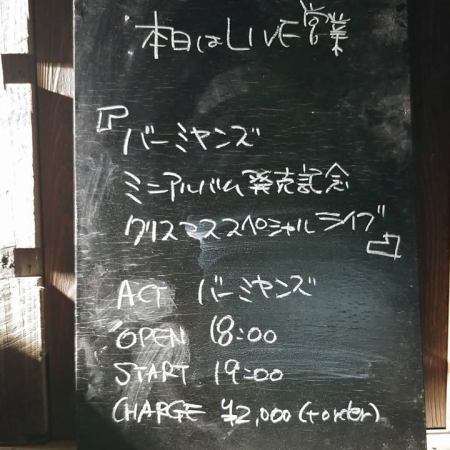 本日はLIVE営業
『バーミヤンズ
ミニアルバム発売記念
クリスマススペシャルライブ』
ACT バーミヤンズ
OPEN 18:00
START 19:00
CHARGE ¥2,000(+order)